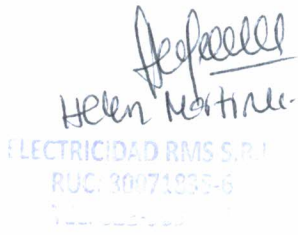 Helen Martinez
ELECTRICIDAD RMS S.R.L
RUC: 80071835-6